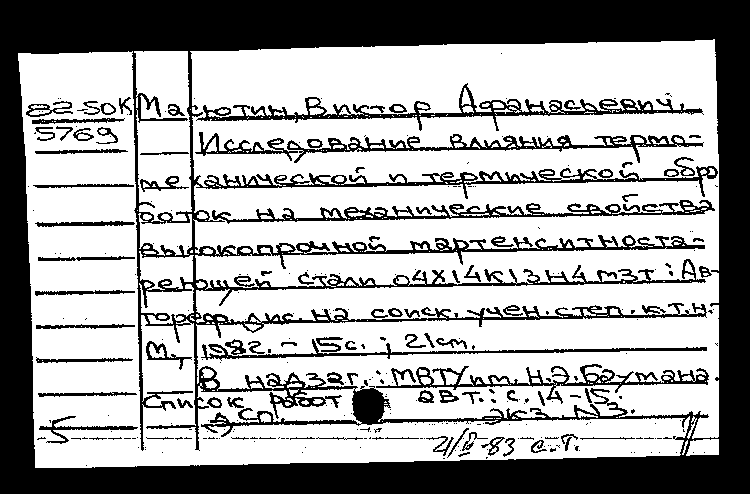 82-50К Масютин, Виктор Афанасьевич.
5769 Исследование влияния термо-
механической и термической обра
боток на механические свойства
высокопрочной мартенситноста-
реющей стали 04Х14К13Н4М3Т : Ав-
тореф. дис. на соиск. учен. степ. к.т.н.-
М., 1982. - 15 с. ; 21 см.
В надзаг. : МВТУ им. Н.Э. Баумана.
Список работ авт. : с. 14-15.
ДСП. Экз. №3.
5
21/IV-83 с.т.